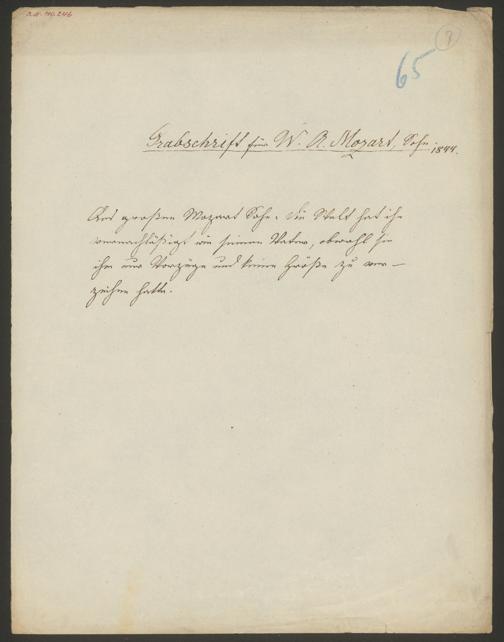 65
Grabschrift für W. A. Mozart, Sohn. 1844.
Des großen Mozart Sohn. Die Welt hat ihn
vernachläßigt wie seinen Vater, obwohl sie
ihm nur Vorzüge und keine Größe zu ver-
zeihen hatte.